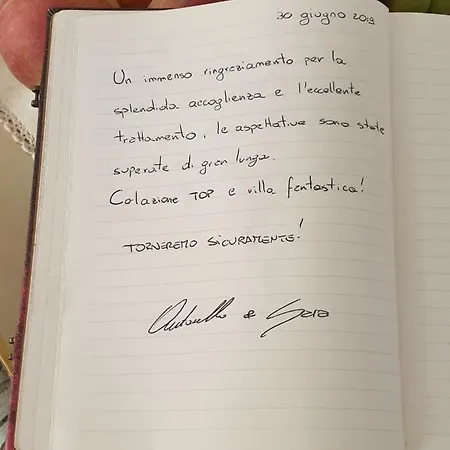 30 giugno 2019
Un immenso ringraziamento per la
splendida accoglienza e l'eccellente
trattamento, le aspettative sono state
superate di gran lunga.
Colazione TOP e villa fantastica!
TORNEREMO SICURAMENTE!
Antonello e Sara